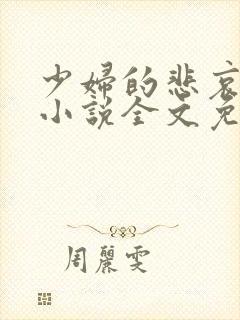 少婦的悲哀
小說全文免
周麗雯